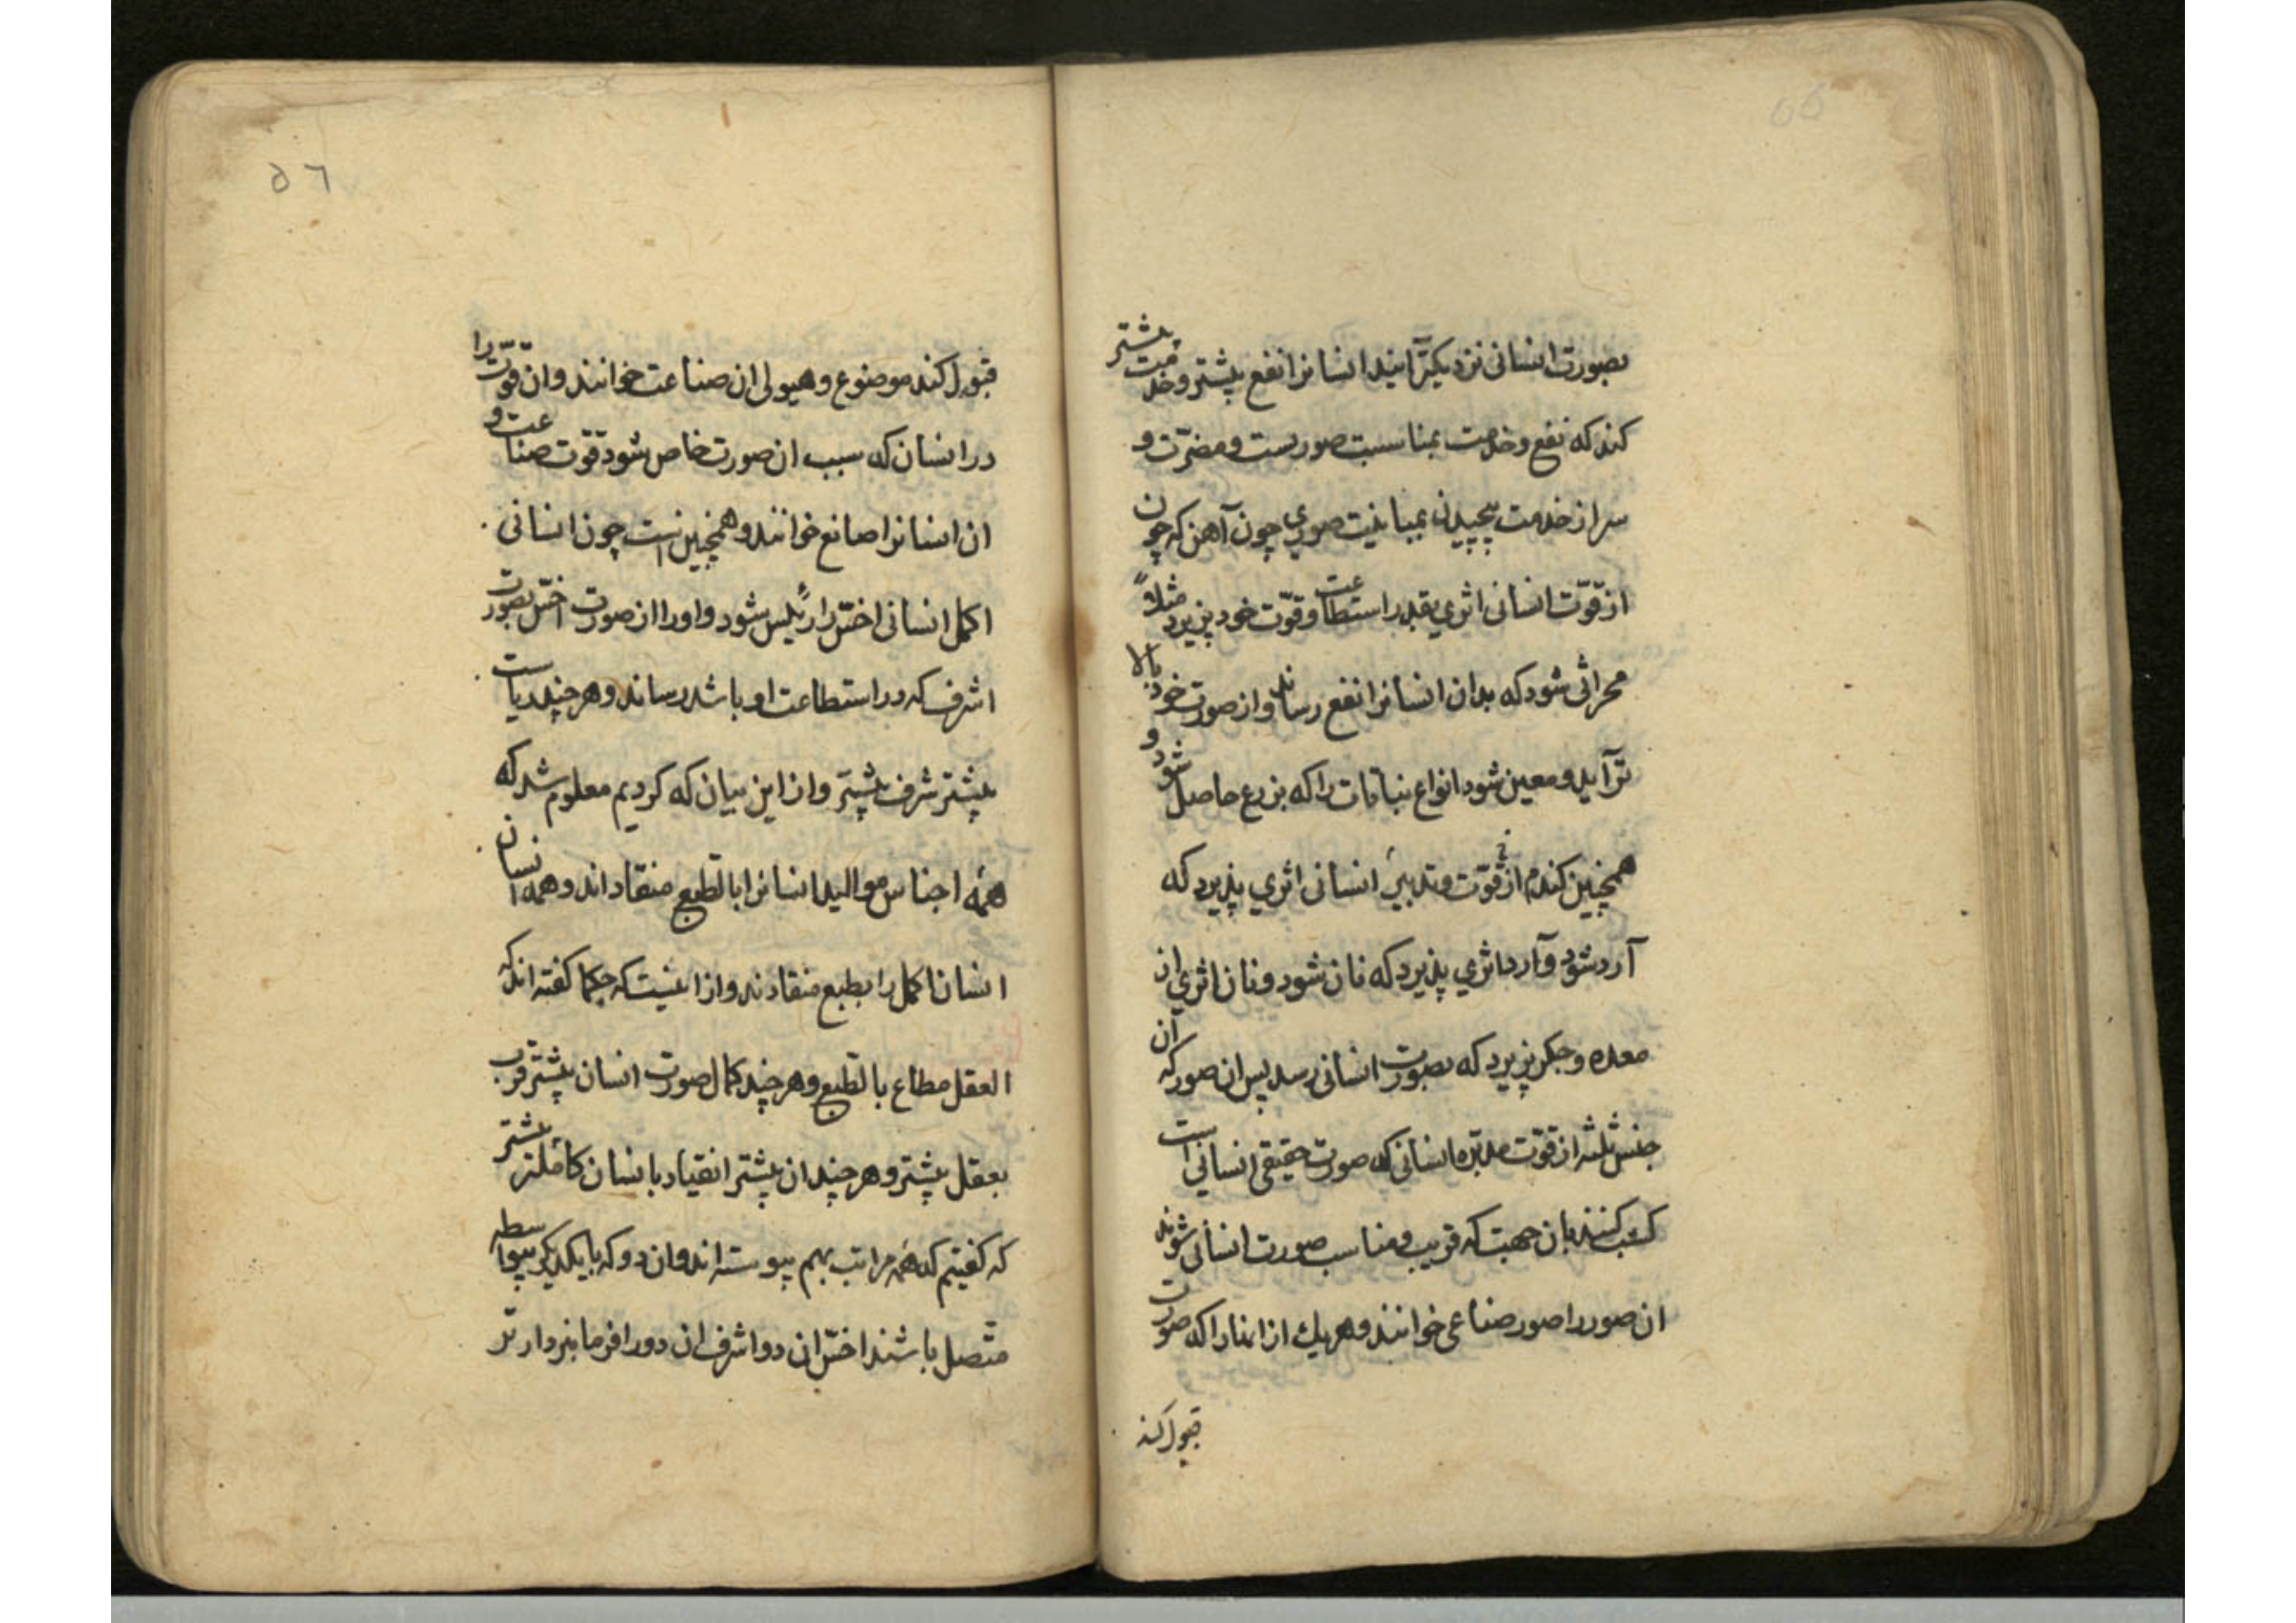 ۵۵
بصورت انسانی نزدیکتر آیند انسانرا نفع بیشتر و خدمت بیشتر
کند که نفع و خدمت بمناسبت صوریست و مضرّت و
سر از خدمت پیچیدن بمباینت صوری چون آهن که چون
از قوّت انسانی اثری بقدر استطاعت و قوّت خود پزیرد مثلاً
محراثی شود که بدان انسانرا نفع رساند و از صورت خود بالا
تر آید و معین شود انواع نباتات را که بزرع حاصل شود و
همچنین کندم از قوّت و تدبیر انسانی اثری پذیرد که
آرد شود و آرد اثری پذیرد که نان شود و نان اثری از
معده و جکر پزیرد که بصورت انسانی رسد پس ان صور که آن
جنس ثلثه از قوّت مدبّره انسانی که صورت حقیقی انسانی است
کسب کنند بان جهت که قریب و مناسب صورت انسانی شوند
ان صور را صور صناعی خوانند و هریك از اینها را که صورت
قبول کند
۵٦
قبول کند موضوع و هیولی ان صناعت خوانند و ان قوّت را
در انسان که سبب ان صورت خاص شود قوّت صناعت و
ان انسانرا صانع خوانند و همچنین است چون انسانی
اکمل انسانی اخسّ را رئیس شود و او را از صورت اخسّ بصورت
اشرف که در استطاعت او باشد رساند و هر چند ریاست
بیشتر شرف بیشتر و از این بیان که کردیم معلوم شد که
همه اجناس موالید انسانرا بالطبع منقاد اند و همه انسان
انسان اکمل را بطبع منقادند و از اینست که حکما کفته اند که
العقل مطاع بالطبع و هر چند کمال صورت انسان بیشتر قرب
بعقل بیشتر و هر چند ان بیشتر انقیاد بانسان کاملتر بیشتر
که کفتیم که همه مراتب بهم پیوسته اند و ان دو که بایکدیکر بیواسطه
متّصل باشند اخسّ ان دو اشرف ان دو را فرمانبردارتر